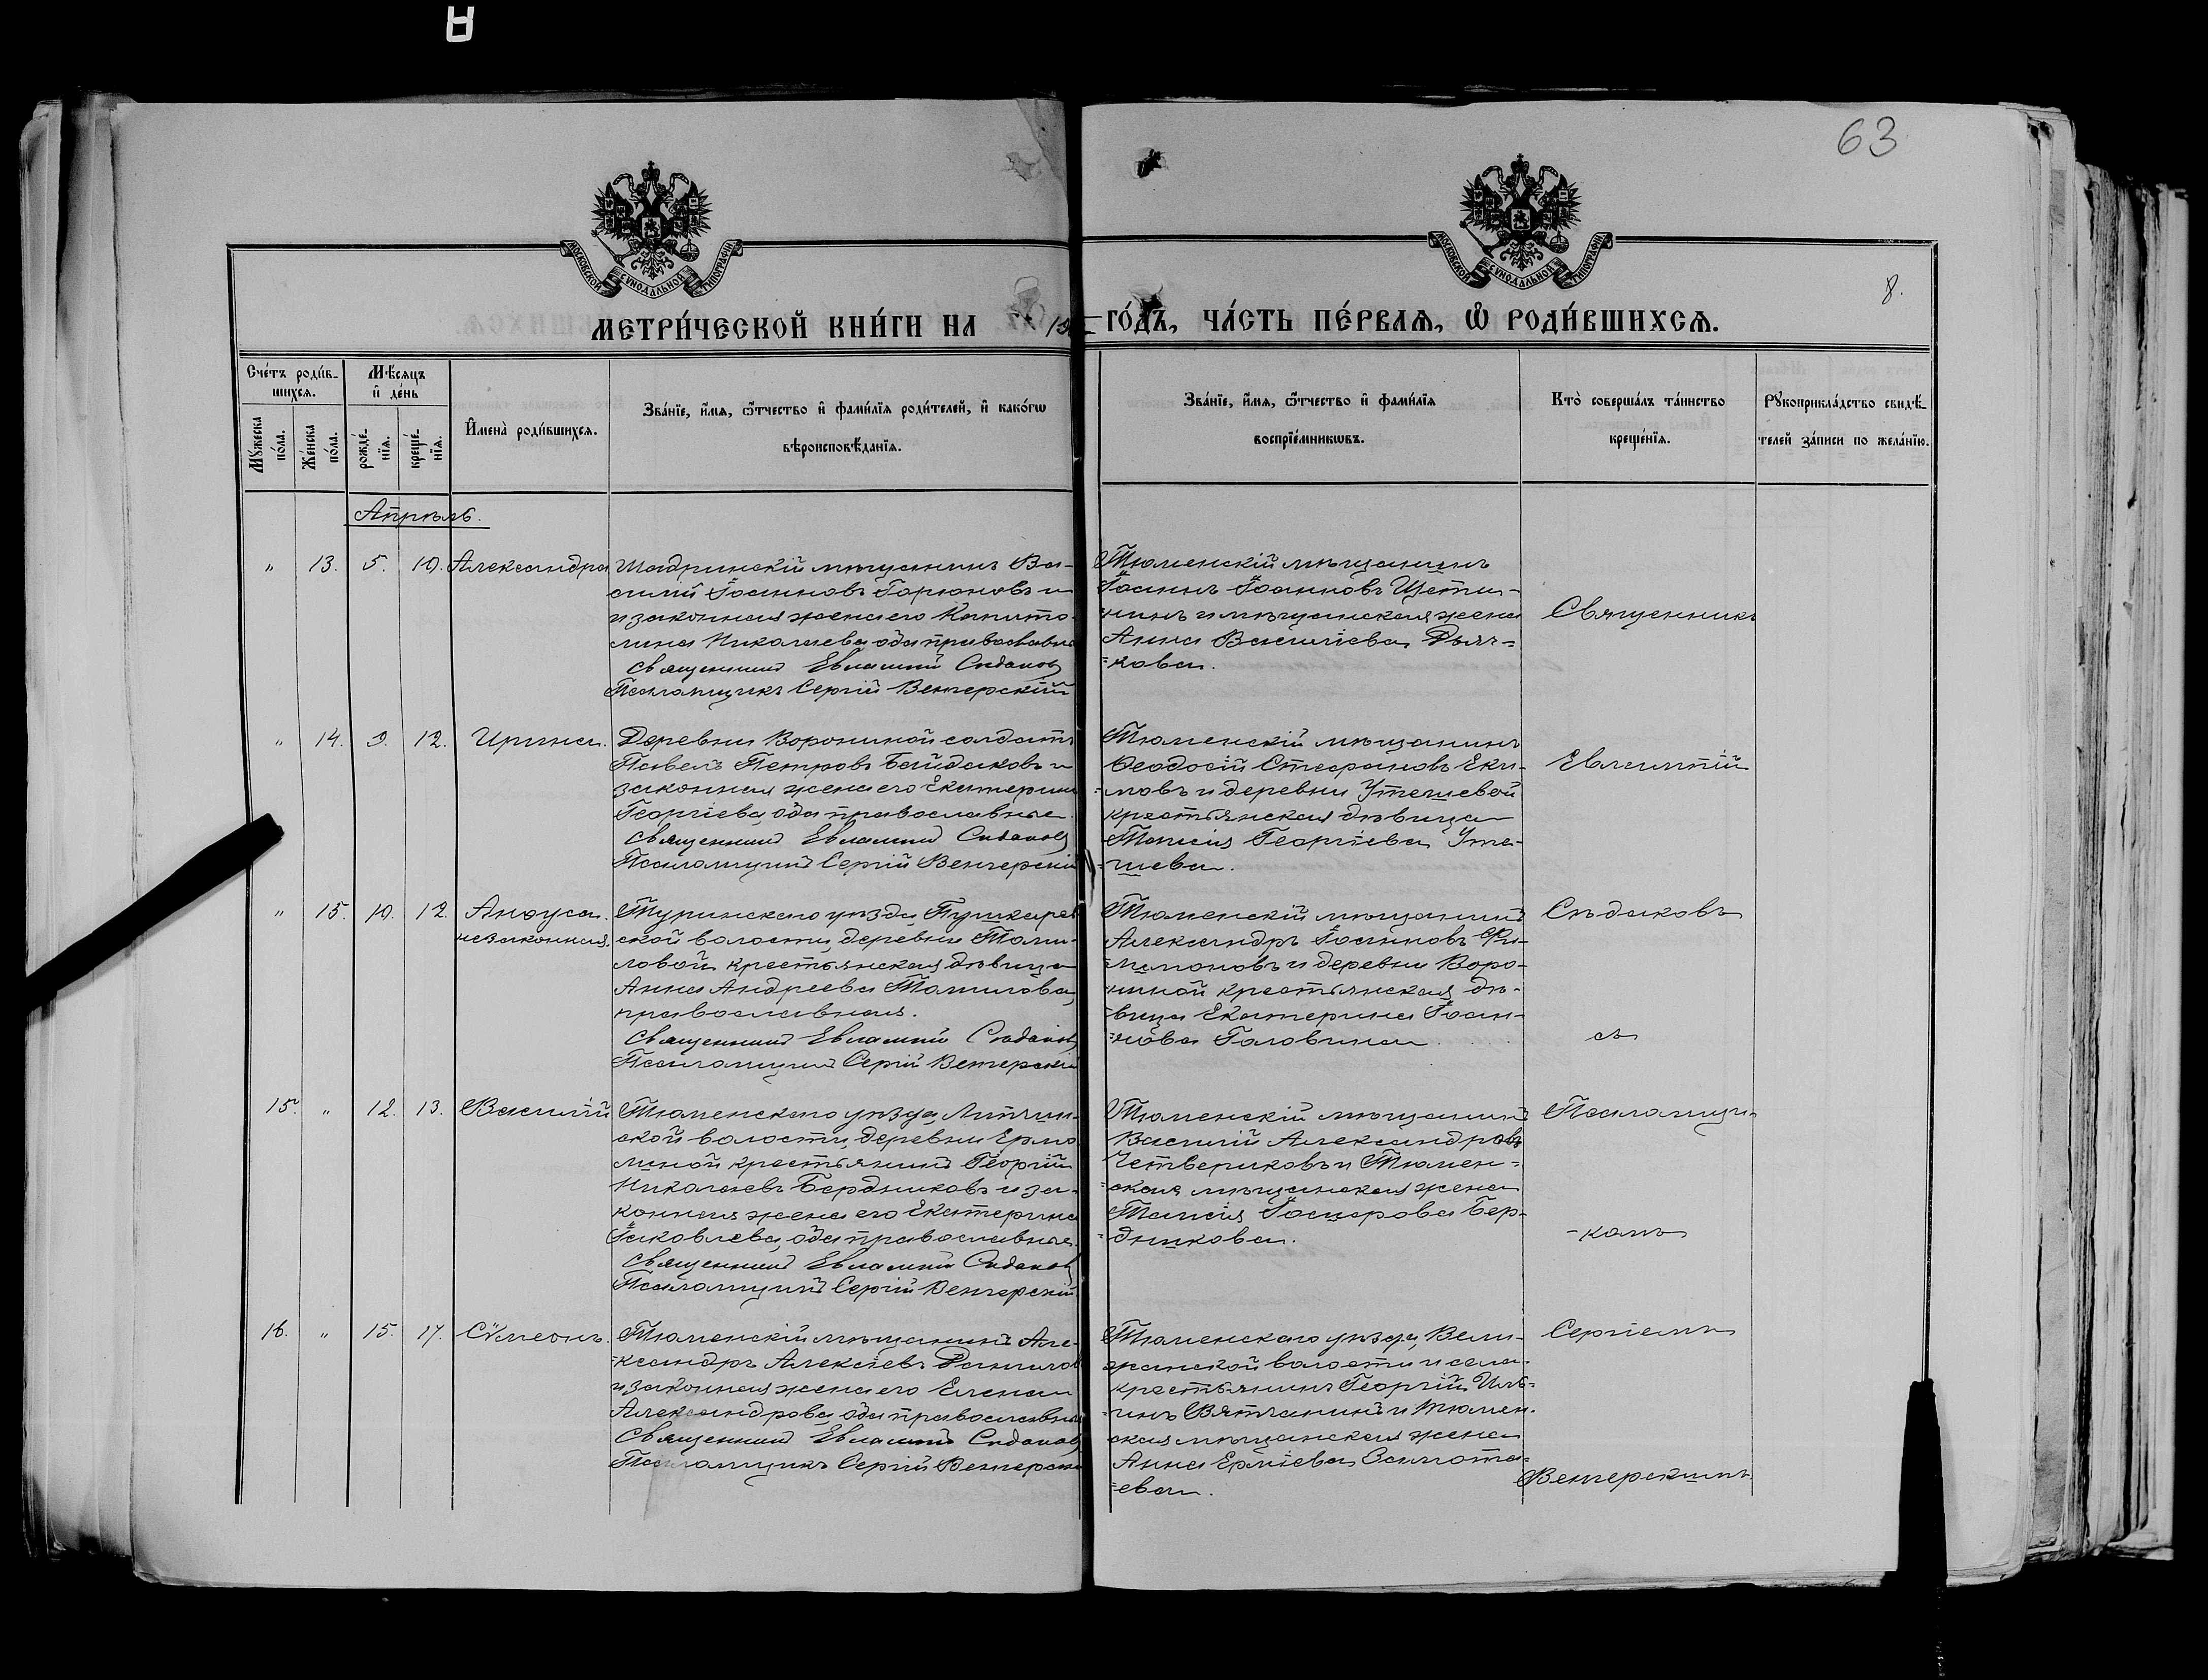 63
МОСКОВСКОЙ СУНОДАЛЬНОЙ ТИПОГРАФІИ
МОСКОВСКОЙ СУНОДАЛЬНОЙ ТИПОГРАФІИ
8.
МЕТРИ́ЧЕСКОЙ КНИ́ГИ НА
ГО́ДЪ, ЧА́СТЬ ПЕ́РВАѦ, Ѡ҆ РОДИ́ВШИХСѦ.
Сче́тъ роди́в-
шихсѧ.
Мꙋжеска по́ла.
Же́нска по́ла.
Мѣ́сѧцъ
и҆ де́нь
рожде́-
нїѧ.
креще́-
нїѧ.
И҆мена̀ роди́вшихсѧ.
Зва́нїе, и҆́мѧ, ѻ҆́тчество и҆ фами́лїѧ роди́телей, и҆ како́гѡ
вѣроисповѣ́данїѧ.
Зва́нїе, и҆́мѧ, ѻ҆́тчество и҆ фами́лїѧ
воспрїе́мникѡвъ.
Кто̀ соверша́лъ та́инство
креще́нїѧ.
Рꙋкоприкла́дство свидѣ́-
телей за́писи по жела́нїю.
Апрѣль.
" 13. 5. 10. Александра
Шадринскій мѣщанинъ Ва-
силій Іоанновъ Горюновъ и
и законная жена его Капито-
лина Николаева, оба православные
Священникъ Евлампій Сѣдаковъ
Псаломщикъ Сергій Венгерскій
Тюменскій мѣщанинъ
Іоаннъ Іоанновъ Щети-
нинъ и мѣщанская жена
Анна Василіева Дьяч-
=кова.
Священникъ
" 14. 9. 12. Ирина.
Деревни Ворониной солдатъ
Павелъ Петровъ Байдаковъ и
законная жена его Екатерина
Георгіева, оба православные
Священникъ Евлампій Сѣдаковъ
Псаломщикъ Сергій Венгерскій
Тюменскій мѣщанинъ
Ѳеодосій Стефановъ Еки-
=мовъ и деревни Утешевой
крестьянская дѣвица
Таисія Георгіева Уте-
=шева.
Евлампій
" 15. 10. 12. Анѳуса.
незаконная.
Туринскаго уѣзда, Пушкарев
ской волости, деревни Томи-
ловой крестьянская дѣвица
Анна Андреева Томилова,
православная.
Священникъ Евлампій Сѣдаковъ
Псаломщикъ Сергій Венгерскій
Тюменскій мѣщанинъ
Александръ Іоанновъ Фи-
=лимоновъ и деревни Воро-
=ниной крестьянская дѣ-
=вица Екатерина Іоан-
=нова Головина
Сѣдаковъ
съ
15. " 12. 13. Василій
Тюменскаго уѣзда, Липчин-
ской волости, деревни Ермо
линой крестьянинъ Георгій
Николаевъ Бердниковъ и за-
конная жена его Екатерина
Іаковлева, оба православные.
Священникъ Евлампій Сѣдаковъ
Псаломщикъ Сергій Венгерскій
Тюменскій мѣщанинъ
Василій Александровъ
Четвериковъ и Тюмен=
=ская мѣщанская жена
Таисія Бер-
=дникова.
Псаломщи-
-комъ
16. " 15. 17. Сѵмеонъ.
Тюменскій мѣщанинъ Але-
=ксандръ Алексіевъ Данилов
и законная жена его Елена
Александрова, оба православные
Священникъ Евлампій Сѣдаковъ
Псаломщикъ Сергій Венгерскій
Тюменскаго уѣзда, Вели-
жанской волости и села
крестьянинъ Георгій Иль-
=инъ Вятчанинъ и тюмен-
ская мѣщанская жена
Анна Ерміева
=ева.
Сергіемъ
Венгерскимъ